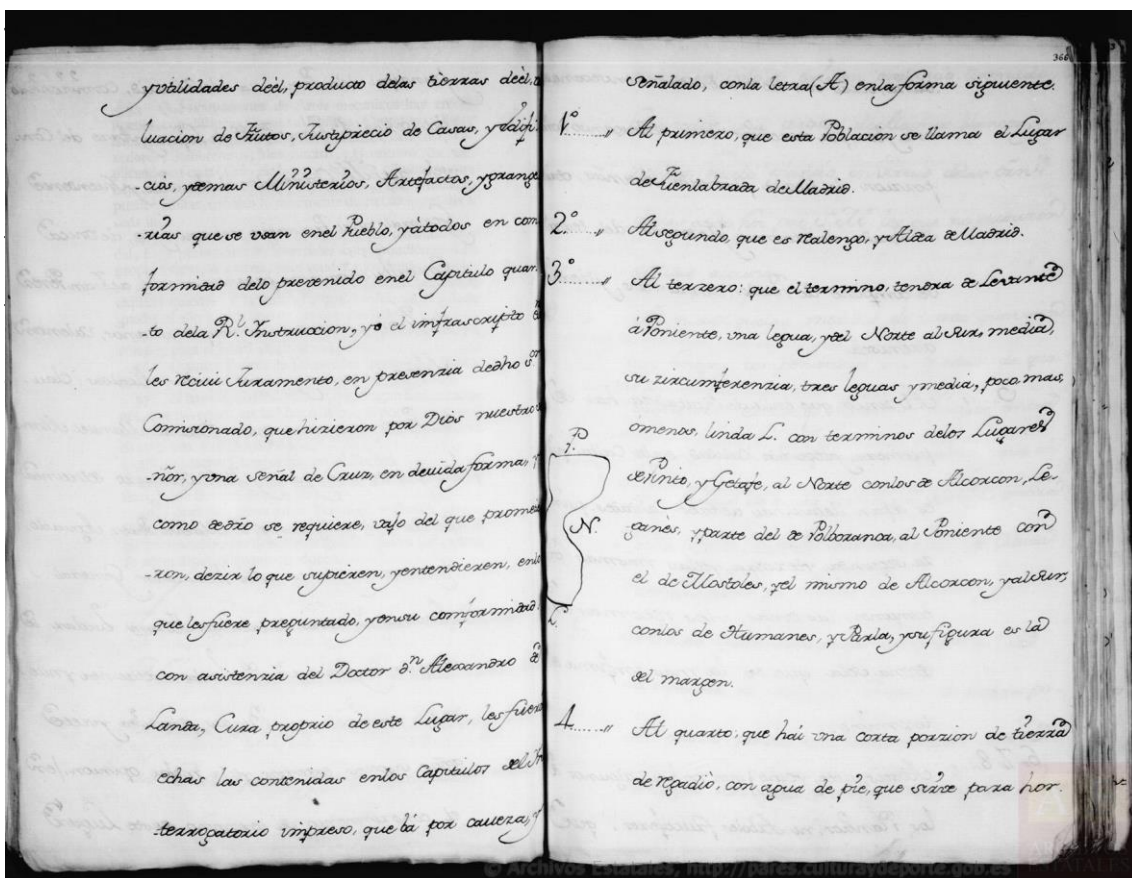 yvtilidades deel, producto delas tierras deel,
luacion de Frutos, Justiprecio de Casas, y edifi
-cios, ydemas Ministerios, Artefactos, ygrange
-rias que se vsan enel Pueblo, yàtodos en con
formidad delo prevenido enel Capitulo quar
-to dela Rl. Instruccion, yò el imfrascripto
les reciui Juramento, en presenzia dedho sor.
Comisionado, que hizieron por Dios nuestro
-ñor, yvna señal de Cruz, en deuida forma,
como dedro se requiere, vajo del que prome
-ron, dezir lo que supieren, yentendieren, enlo
que lesfuere preguntado, yensu comformidad
con asistenzia del Doctor dn. Alexandro de
Landa, Cura proprio de este Lugar, les fuer
echas las contenidas enlos Capitulos del In
-terrogatorio impreso, que bá por caueza, y
366
Señalado, conla letra (A) enla forma siguiente.
1º Al primero, que esta Poblacion se llama el Lugar
de Fuenlabrada de Madrid.
2º Al segundo, que es realengo, y Aldea de Madrid.
3º Al terzero: que el termino, tendra de Levante
à Poniente, vna legua, ydel Norte al Sur, media,
su zircumferenzia, tres leguas ymedia, poco mas,
omenos, linda L. con terminos delos Lugares
P.
de Pinto, y Getafe, al Norte conlos de Alcorcon, Le-
N.
ganès, yparte del de Polboranca, al Poniente con
el de Mostoles, yel mismo de Alcorcon, yal Sur,
L.
conlos de Humanes, y Parla, ysu figura es la
del margen.
4 Al quarto, que hái vna corta porzion de tierra
de regadiò, con agua de pie, que sirve para hor.
© Archivos Estatales, http://pares.culturaydeporte.gob.es